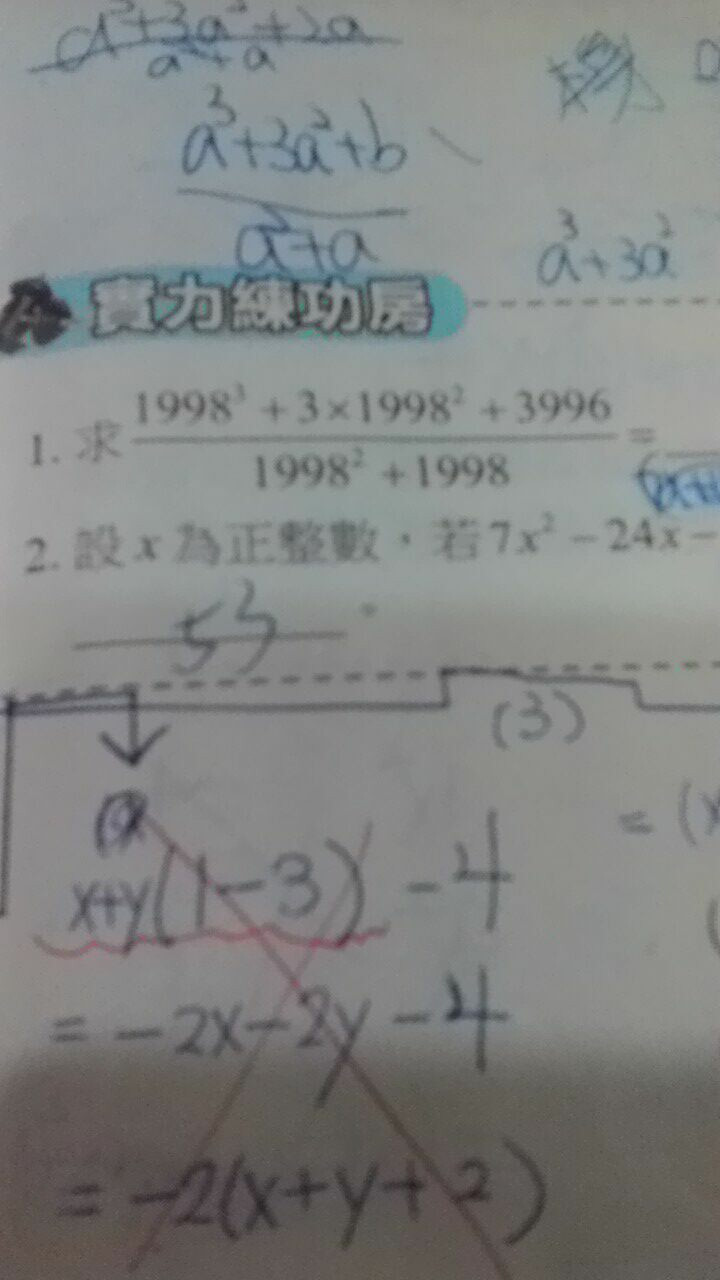 a³+3a²+2a
a²+a
a³+3a²+b
a²+a
a³+3a²
實力練功房
1. 求 1998³ + 3×1998² + 3996 =
1998² + 1998
2. 設 x 為正整數，若 7x² − 24x −
53
(3)
x+y(1−3) −4
= (x
= −2x−2y −4
= −2(x+y+2)